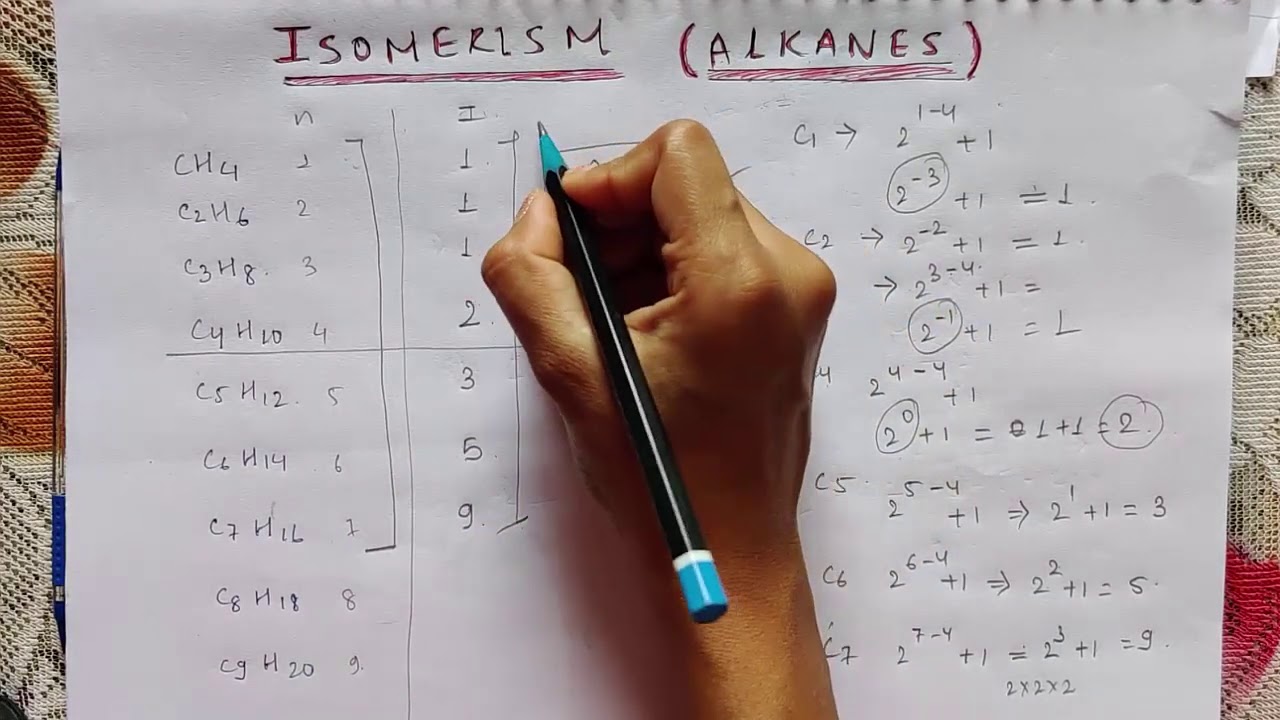 ISOMERISM (ALKANES)
n I.
CH4 1 1.
C2H6 2 1
C3H8. 3 1
C4H10 4 2.
C5H12. 5 3
C6H14 6 5.
C7H16 7 9.
C8H18 8
C9H20 9.
C1 → 2^1-4 + 1
2^-3 + 1 = 1.
C2 → 2^-2 + 1 = 1.
→ 2^3-4. + 1 =
2^-1 + 1 = 1
4 2^4-4 + 1
2^0 + 1 = 1 + 1 = 2
C5. 2^5-4 + 1 ⇒ 2^1 + 1 = 3
C6 2^6-4 + 1 ⇒ 2^2 + 1 = 5.
C7 2^7-4 + 1 = 2^3 + 1 = 9.
2×2×2